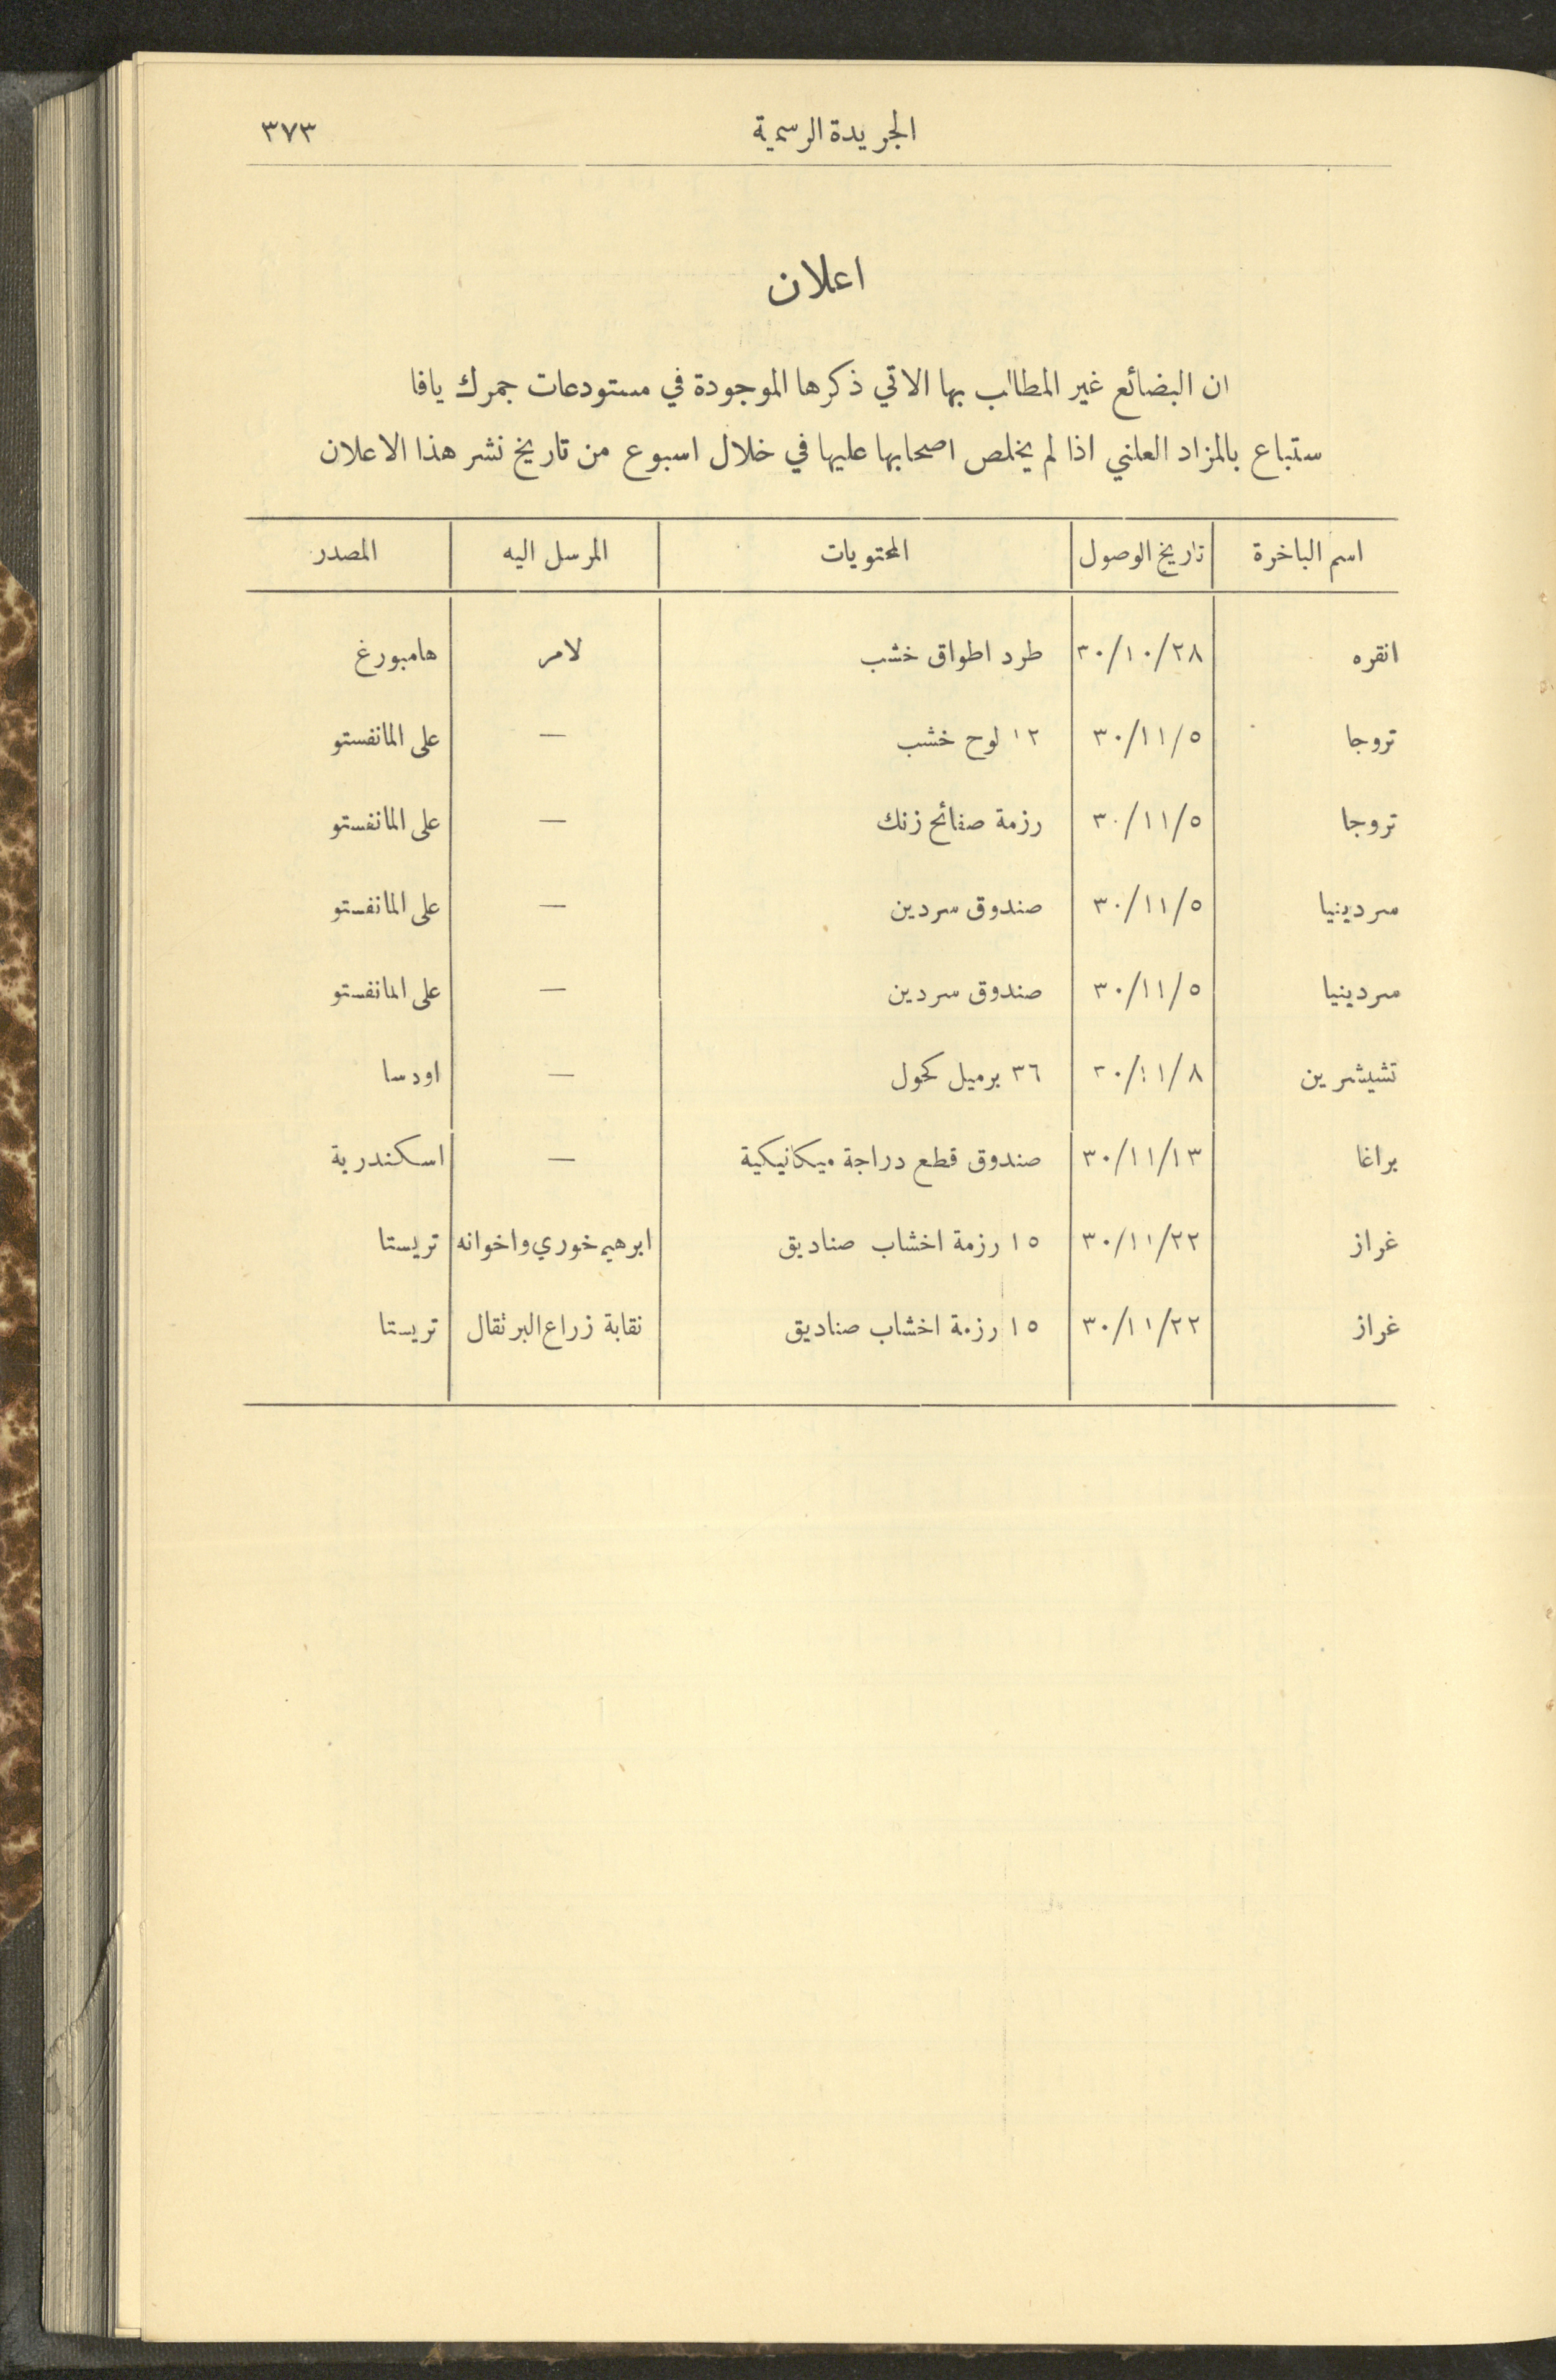 الجريدة الرسمية ٣٧٣
اعلان
ان البضائع غير المطالب بها الاتي ذكرها الموجودة في مستودعات جمرك يافا
ستباع بالمزاد العلني اذا لم يخلص اصحابها عليها في خلال اسبوع من تاريخ نشر هذا الاعلان
اسم الباخرة تاريخ الوصول المحتويات المرسل اليه المصدر
انقره ٣٠/١٠/٢٨ طرد اطواق خشب لامر هامبورغ
تروجا ٣٠/١١/٥ ١٢ لوح خشب — على المانفستو
تروجا ٣٠/١١/٥ رزمة صفائح زنك — على المانفستو
سردينيا ٣٠/١١/٥ صندوق سردين — على المانفستو
سردينيا ٣٠/١١/٥ صندوق سردين — على المانفستو
تشيشرين ٣٠/١١/٨ ٣٦ برميل كحول — اودسا
براغا ٣٠/١١/١٣ صندوق قطع دراجة ميكانيكية — اسكندرية
غراز ٣٠/١١/٢٢ ١٥ رزمة اخشاب صناديق ابرهيم خوري واخوانه تريستا
غراز ٣٠/١١/٢٢ ١٥ رزمة اخشاب صناديق نقابة زراع البرتقال تريستا